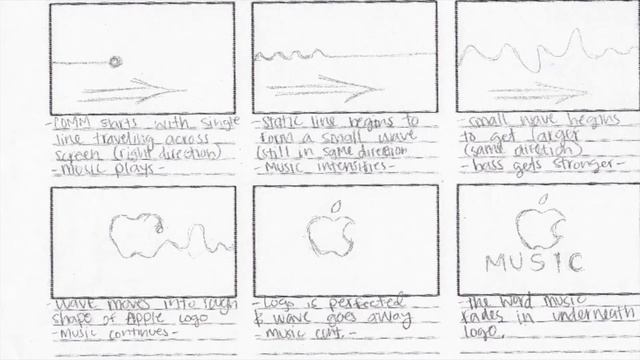 - COMM starts with single
line traveling across
screen (right direction)
- Music plays -
- Static line begins to
form a small wave
(still in same direction
- Music intensifies -
- small wave begins
to get larger
(same direction)
- bass gets stronger -
wave moves into rough
shape of Apple logo
- Music continues -
- Logo is perfected
& wave goes away
- Music cont. -
MUSIC
- the word music
fades in underneath
logo.